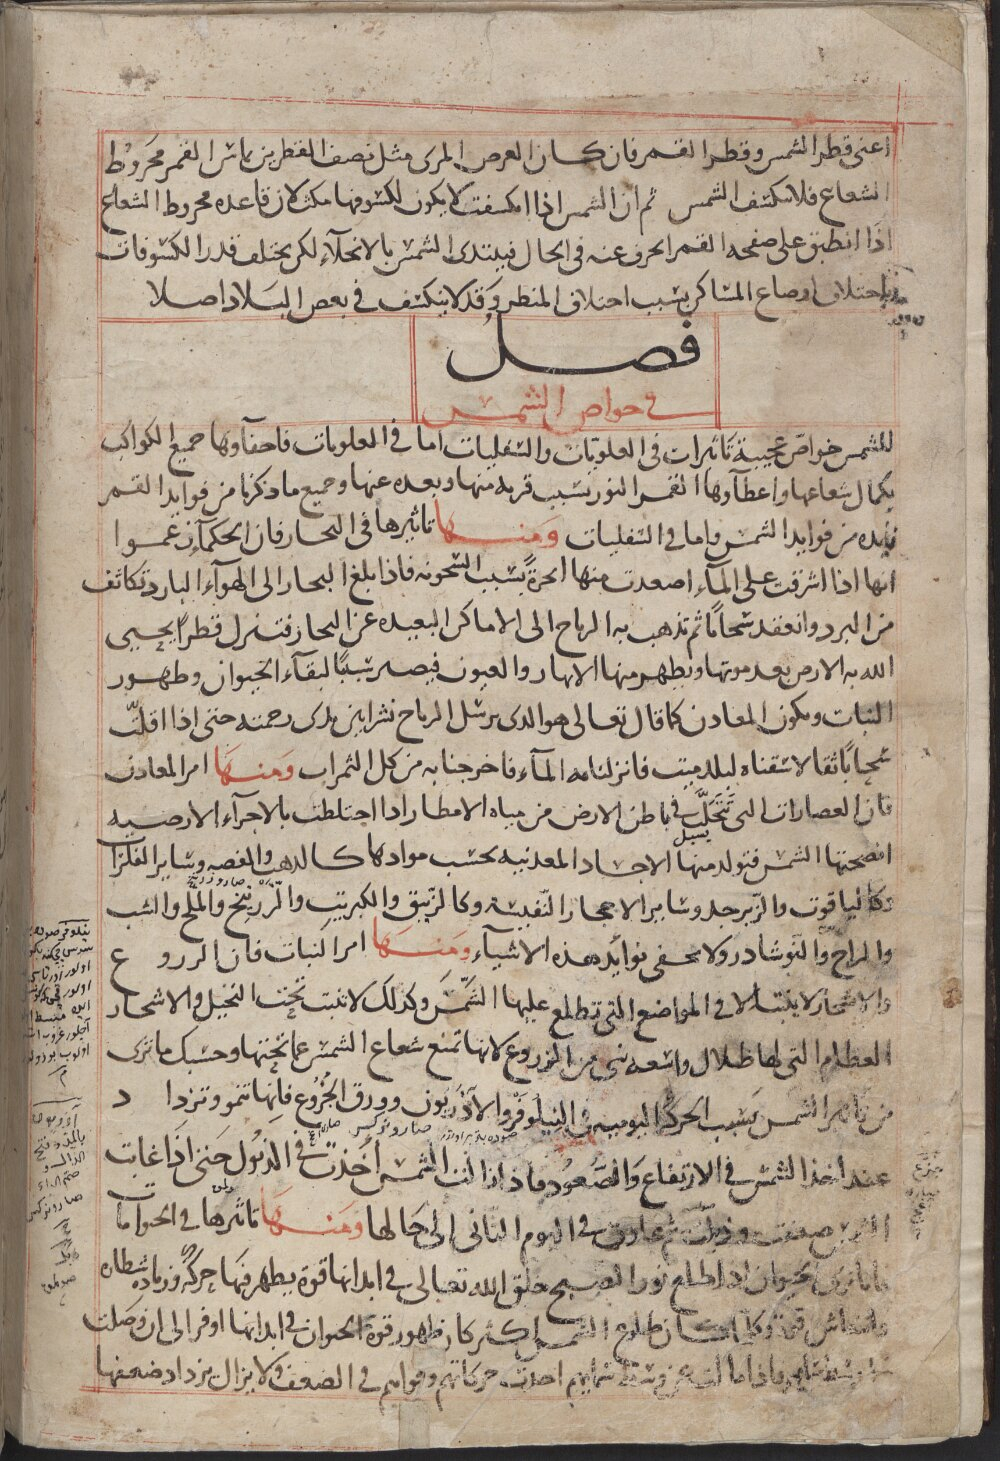 اعنى قطر الشمس وقطر القمر فان كان العرض المرى مثل نصف القطرين يماس القمر مخروط
الشعاع فلا تنكسف الشمس ثم ان الشمس اذا انكسفت لا يكون لكسوفها مكث لان قاعده مخروط الشعاع
اذا انطبق على صفحه القمر انحرف عنه فى الحال فيبتدى الشمس بالانجلاء لكن يختلف قدر الكسوفات
باختلاف اوضاع المساكن بسبب اختلاف المنظر وقد لا ينكسف فى بعض البلاد اصلا
فصل
فى خواص الشمس
للشمس خواص عجيبة تاثيرات فى العلويات والسفليات اما فى العلويات فاخفاوها جميع الكواكب
بكمال شعاعها واعطاوها القمر النور بسبب قربه منها وبعده عنها وجميع ما ذكرنا من فوايد القمر
فايده من فوايد الشمس واما فى السفليات ومنها تاثيرها فى البحار فان الحكماء زعموا
انها اذا اشرقت على الماء اصعدت منها ابخرة بسبب السخونه فاذا بلغ البخار الى الهواء البارد تكاثف
من البرد وانعقد سحابا ثم تذهب به الرياح الى الاماكن البعيده عن البحار فتنزل قطرا يحيى
الله به الارض بعد موتها ويظهر منها الانهار والعيون فيصير سببا لبقاء الحيوان وظهور
النبات وتكون المعادن كما قال تعالى هو الذى يرسل الرياح نشرا بين يدى رحمته حتى اذا اقلت
سحابا ثقالا سقناه لبلد ميت فانزلنا به الماء فاخرجنا به من كل الثمرات ومنها امر المعادن
فان العصارات التى تتحلب فى باطن الارض من مياه الامطار اذا اختلطت بالاجزاء الارضيه
يسيل
انضجتها الشمس فتولد منها الاجساد المعدنيه بحسب موادها كالذهب والفضه وساير الفلزات
وكالياقوت والزبرجد وساير الاحجار النفيسة وكالزيبق والكبريت والزرنيخ والملح والشب
والزاج والنوشادر ولا يخفى فوايد هذه الاشياء ومنها امر النبات فان الزروع
والاشجار لا ينبت الا فى المواضع التى تطلع عليها الشمس وكذلك لا تنبت تحت النخيل والاشجار
العظام التى لها ظلال واسعه شى من الزروع لانها تمنع شعاع الشمس عما تحتها وحسبك ما ترى
من تاثير الشمس بسبب الحركة اليوميه فى النيلوفر والاذريون وورق الخروع فانها تنمو وتزداد
عند اخذ الشمس فى الارتفاع والصعود فاذا زالت الشمس اخذت فى الذبول حتى اذا غابت
الشمس ضعفت وذبلت ثم عادت فى اليوم الثانى الى حالها ومنها تاثيرها فى الحيوانات
فانا نرى الحيوان اذا طلع نور الصبح خلق الله تعالى فى ابدانها قوة يظهر فيها حركة وزياده نشطاره
وانتعاش قوة وكلما كان طلوع الشمس اكثر كان ظهور قوة الحيوان فى ابدانها اوفر الى ان وصلت
الى وسط سمائهم فاذا مالت عن وسط سمائهم اخذت حركاتهم وقواهم فى الضعف ولا يزال يزداد ضعفها